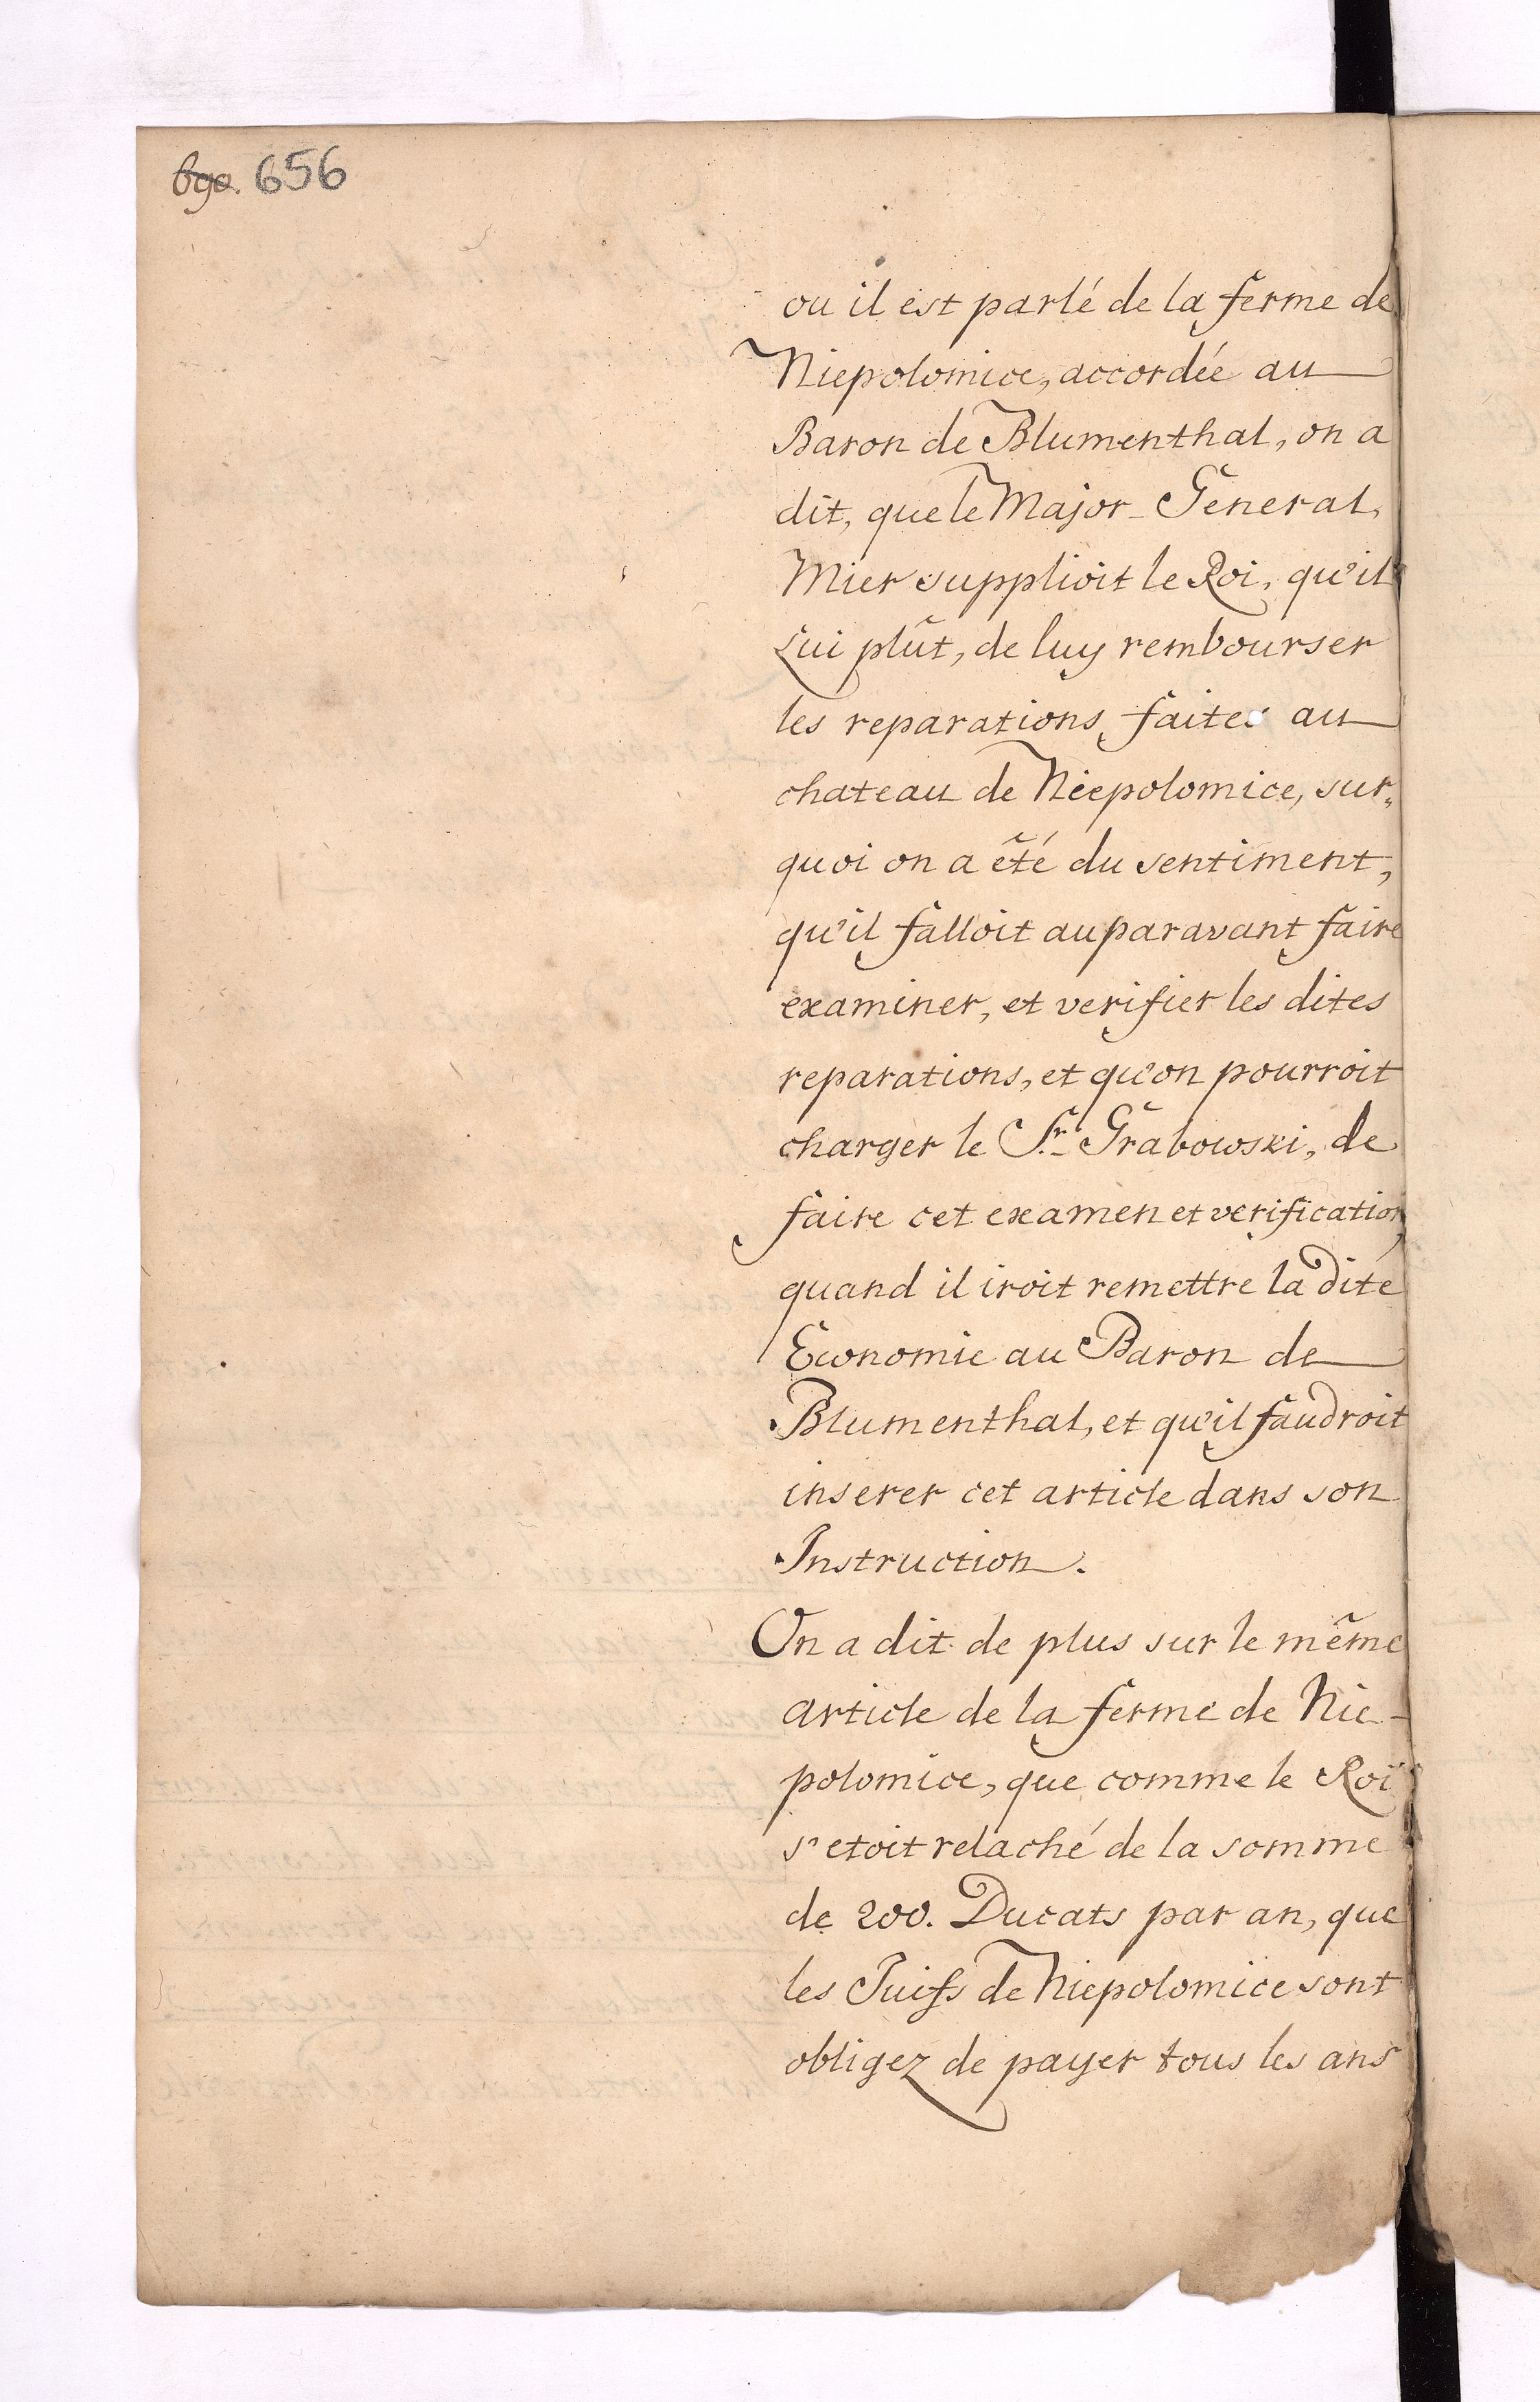 690. 656
ou il est parlé de la ferme de
Niepolomice, accordée au
Baron de Blumenthal, on a
dit, que le Major-General
Mier supplioit le Roi, qu'il
Lui plût, de luy rembourser
les reparations faites au
chateau de Niepolomice, sur„
quoi on a été du sentiment,
qu'il falloit auparavant faire
examiner, et verifier les dites
reparations, et qu'on pourroit
charger le Sr. Grabowski, de
faire cet examen et verification,
quand il iroit remettre la dite
Economie au Baron de
Blumenthal, et qu'il faudroit
inserer cet article dans son
Instruction.
On a dit de plus sur le même
article de la ferme de Nie-
polomice, que comme le Roi
s'etoit relaché de la somme
de 200. Ducats par an, que
les Juifs de Niepolomice sont
obligez de payer tous les ans